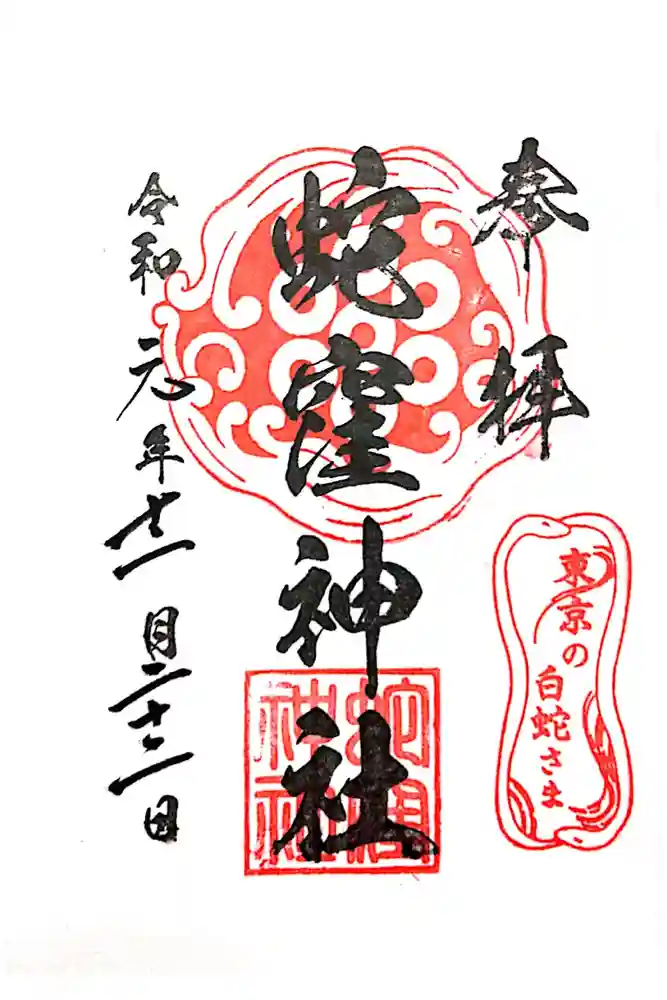 奉拝
東京の
白蛇さま
蛇窪神社
蛇窪
神社
令和元年十一月二十二日